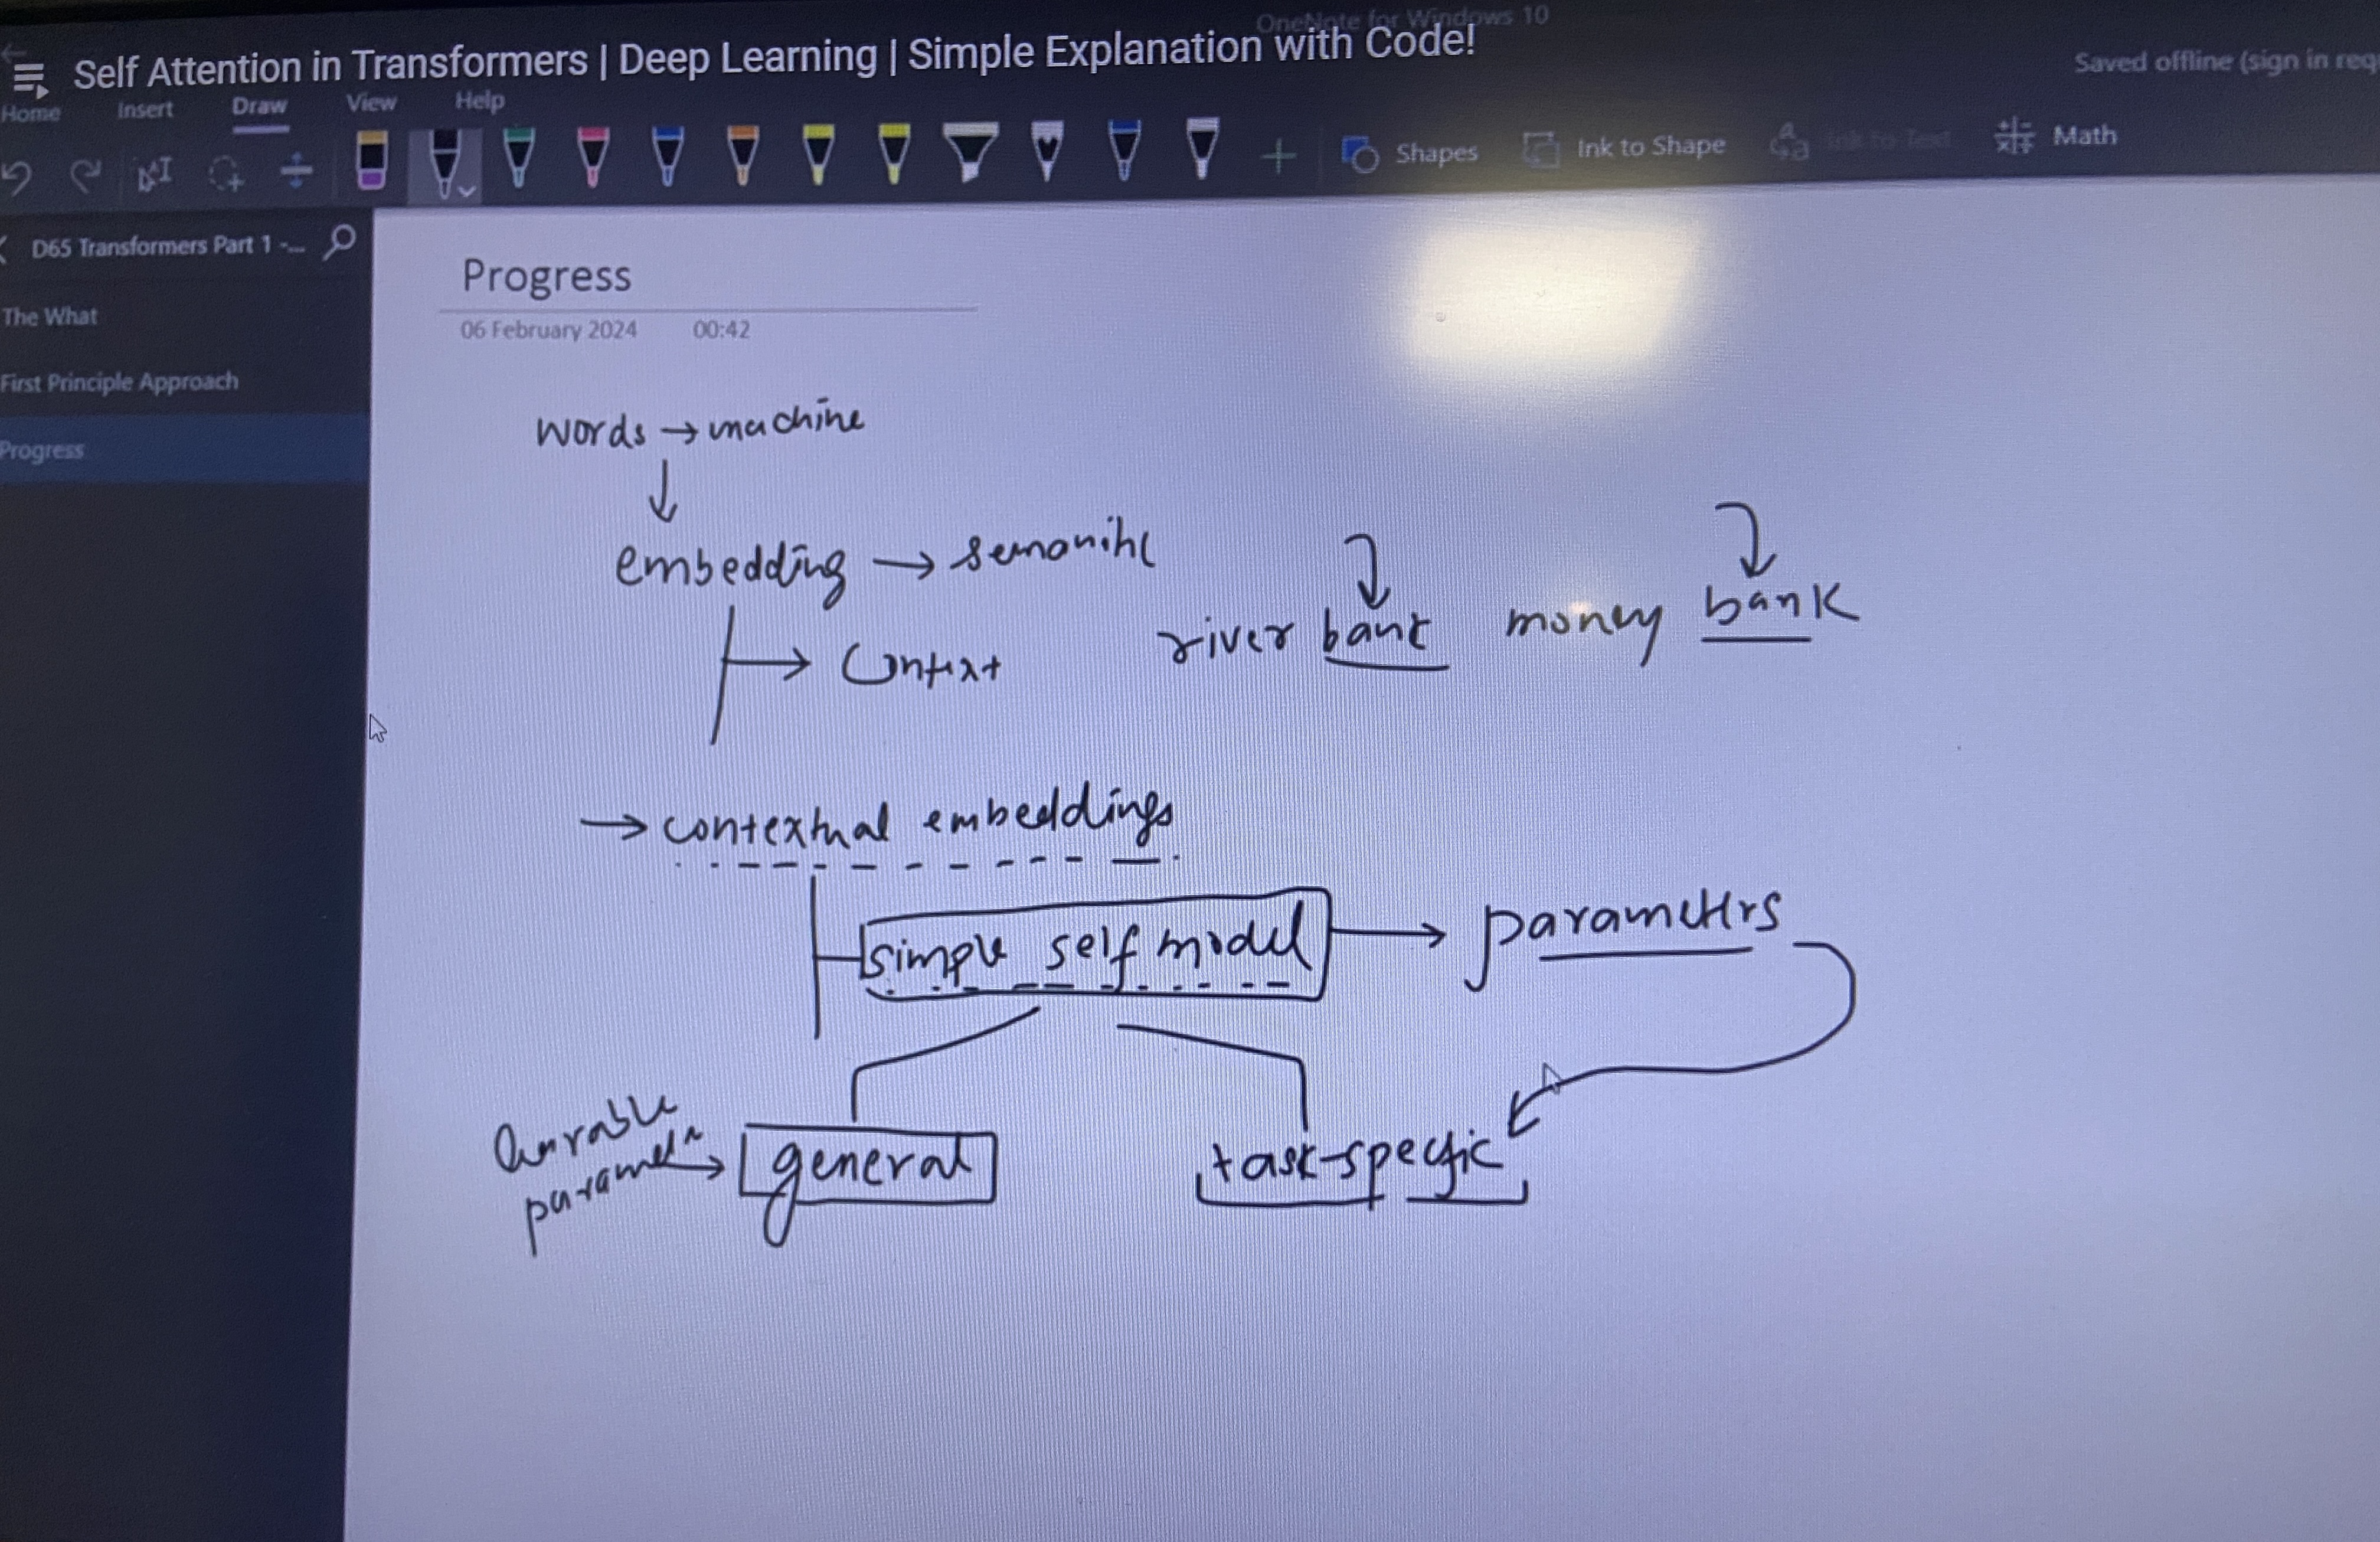 OneNote for Windows 10
Self Attention in Transformers | Deep Learning | Simple Explanation with Code!
Saved offline (sign in req
Home Insert Draw View Help
Shapes Ink to Shape Ink to Text Math
D65 Transformers Part 1 -...
The What
First Principle Approach
Progress
Progress
06 February 2024 00:42
words → machine
embedding → semantic
river bank money bank
Context
→ contextual embeddings
simple self model → parameters
learnable
parameter → general
task-specific